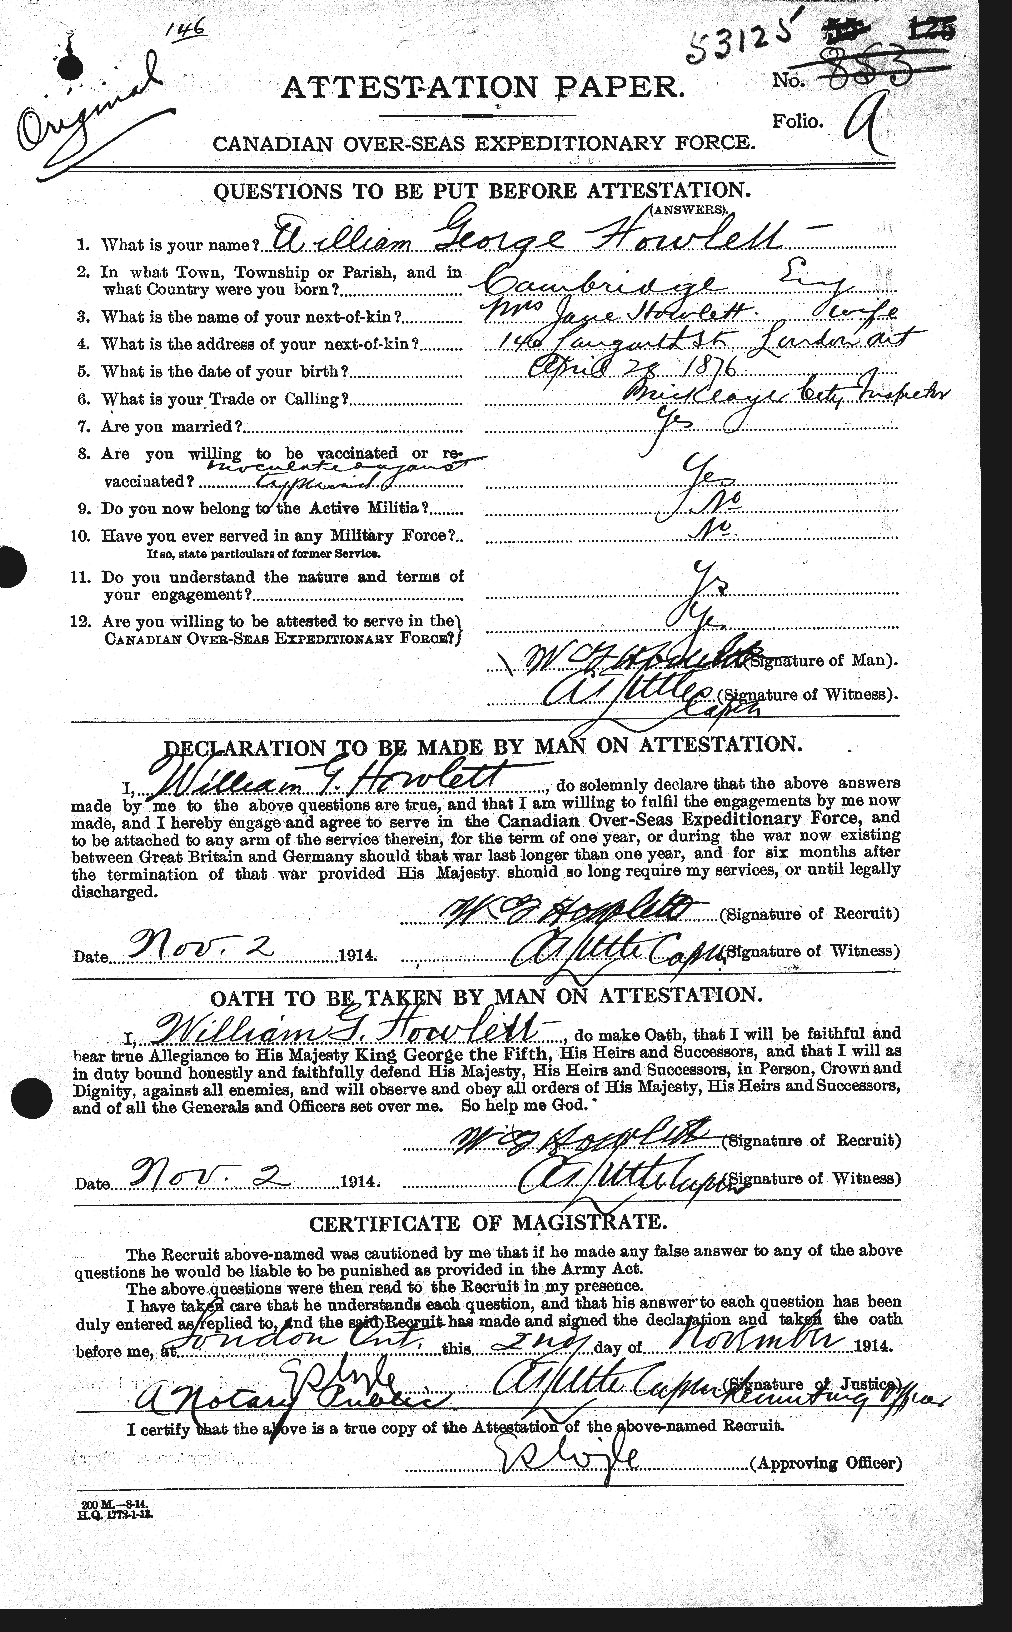 146
53125
125
No. 853
Original
ATTESTATION PAPER.
Folio. A
CANADIAN OVER-SEAS EXPEDITIONARY FORCE.
QUESTIONS TO BE PUT BEFORE ATTESTATION.
(ANSWERS).
1. What is your name? William George Howlett
2. In what Town, Township or Parish, and in
what Country were you born? Cambridge Eng
3. What is the name of your next-of-kin? Mrs Jane Howlett. wife
4. What is the address of your next-of-kin? 146 St London Ont
5. What is the date of your birth? April 28 1876
6. What is your Trade or Calling? City Inspector
7. Are you married? Yes
8. Are you willing to be vaccinated or re-
inoculated against
vaccinated? typhoid Yes
9. Do you now belong to the Active Militia? No
10. Have you ever served in any Military Force? No.
If so, state particulars of former Service.
11. Do you understand the nature and terms of
your engagement? Yes
12. Are you willing to be attested to serve in the
CANADIAN OVER-SEAS EXPEDITIONARY FORCE? Yes
W G Howlett (Signature of Man).
(Signature of Witness).
Captn
DECLARATION TO BE MADE BY MAN ON ATTESTATION.
I, William G. Howlett, do solemnly declare that the above answers
made by me to the above questions are true, and that I am willing to fulfil the engagements by me now
made, and I hereby engage and agree to serve in the Canadian Over-Seas Expeditionary Force, and
to be attached to any arm of the service therein, for the term of one year, or during the war now existing
between Great Britain and Germany should that war last longer than one year, and for six months after
the termination of that war provided His Majesty should so long require my services, or until legally
discharged.
W G Howlett (Signature of Recruit)
Date Nov. 2 1914. Captn (Signature of Witness)
OATH TO BE TAKEN BY MAN ON ATTESTATION.
I, William G. Howlett, do make Oath, that I will be faithful and
bear true Allegiance to His Majesty King George the Fifth, His Heirs and Successors, and that I will as
in duty bound honestly and faithfully defend His Majesty, His Heirs and Successors, in Person, Crown and
Dignity, against all enemies, and will observe and obey all orders of His Majesty, His Heirs and Successors,
and of all the Generals and Officers set over me. So help me God.
W G Howlett (Signature of Recruit)
Date Nov. 2 1914. Captn (Signature of Witness)
CERTIFICATE OF MAGISTRATE.
The Recruit above-named was cautioned by me that if he made any false answer to any of the above
questions he would be liable to be punished as provided in the Army Act.
The above questions were then read to the Recruit in my presence.
I have taken care that he understands each question, and that his answer to each question has been
duly entered as replied to, and the said Recruit has made and signed the declaration and taken the oath
before me, at London Ont. this 2nd day of November 1914.
Captn Recruiting Officer (Signature of Justice)
A Notary Public
I certify that the above is a true copy of the Attestation of the above-named Recruit.
(Approving Officer)
200 M.—8-14.
H.Q. 1772-1-13.